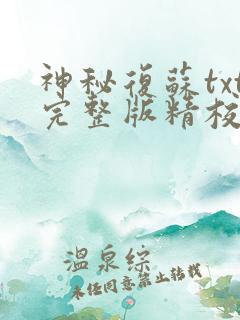 神秘復蘇txt
完整版精校
溫泉綜
未任同意禁止转载